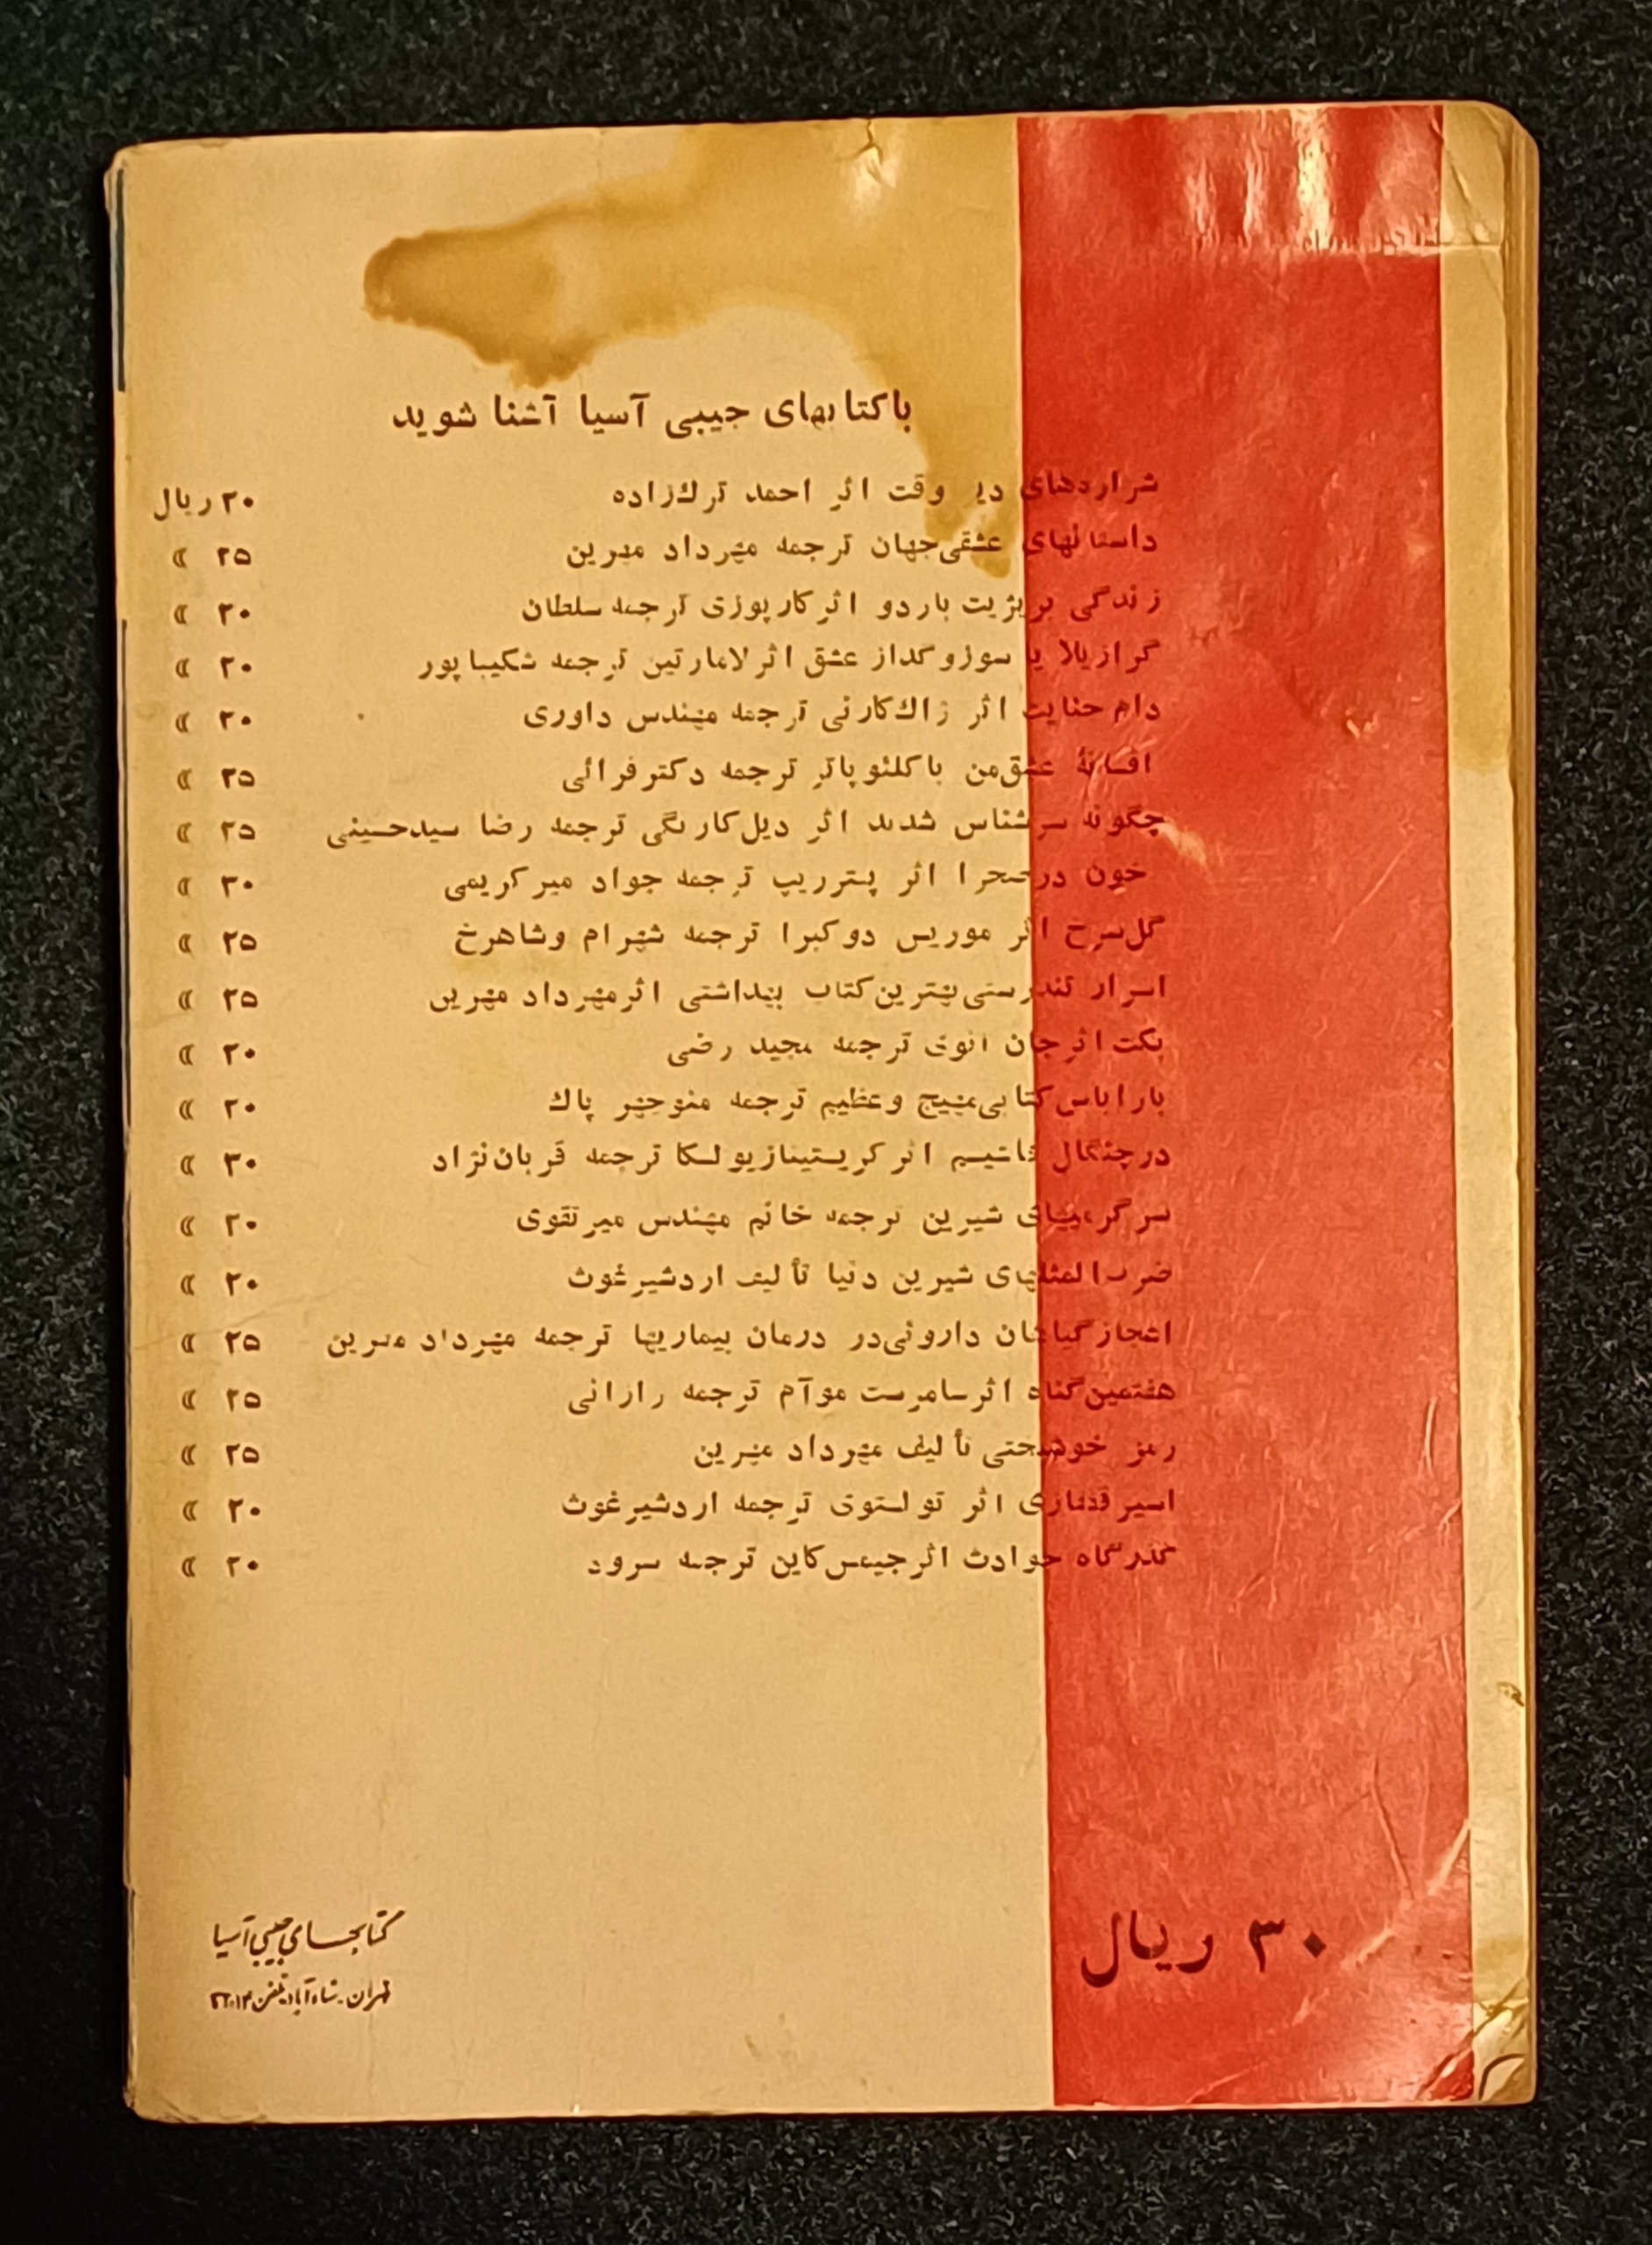 با کتابهای جیبی آسیا آشنا شوید
شراره‌های دیر وقت اثر احمد ترک‌زاده ۲۰ ریال
داستانهای عشقی جهان ترجمه مهرداد مهرین ۲۵ »
زندگی بریژیت باردو اثر کارپوزی ترجمه سلطان ۲۰ »
گرازیلا یا سوز و گداز عشق اثر لامارتین ترجمه شکیبا پور ۲۰ »
دام جنایت اثر ژاک کارنی ترجمه مهندس داوری ۲۰ »
افسانهٔ عشق من با کلئوپاتر ترجمه دکتر فرائی ۲۵ »
چگونه سرشناس شدند اثر دیل کارنگی ترجمه رضا سیدحسینی ۲۵ »
خون در صحرا اثر پیتر ریپ ترجمه جواد میر کریمی ۳۰ »
گل سرخ اثر موریس دوکبرا ترجمه شهرام وشاهرخ ۲۵ »
اسرار تندرستی بهترین کتاب بهداشتی اثر مهرداد مهرین ۲۵ »
بکت اثر جان انوی ترجمه مجید رضی ۲۰ »
باراباس کتابی مهیج وعظیم ترجمه منوچهر پاک ۲۰ »
در چنگال فاشیسم اثر کریستینا زیولسکا ترجمه قربان نژاد ۳۰ »
سرگرمیهای شیرین ترجمه خانم مهندس میرتقوی ۲۰ »
ضرب‌المثلهای شیرین دنیا تألیف اردشیر غوث ۲۰ »
اعجاز گیاهان داروئی در درمان بیماریها ترجمه مهرداد مهرین ۲۵ »
هفتمین گناه اثر سامرست موآم ترجمه رارانی ۲۵ »
رمز خوشبختی تألیف مهرداد مهرین ۲۵ »
اسیر قفقازی اثر تولستوی ترجمه اردشیر غوث ۲۰ »
گذرگاه حوادث اثر جیمس کاین ترجمه سرود ۲۰ »
۳۰ ریال
کتابهای جیبی آسیا
تهران - شاه‌آباد تلفن